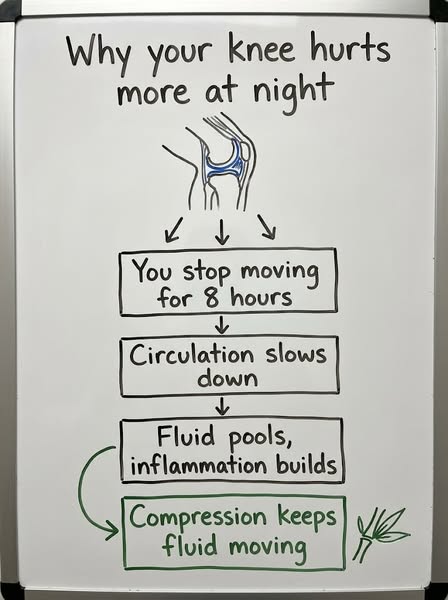 Why your knee hurts
more at night
You stop moving
for 8 hours
Circulation slows
down
Fluid pools,
inflammation builds
Compression keeps
fluid moving